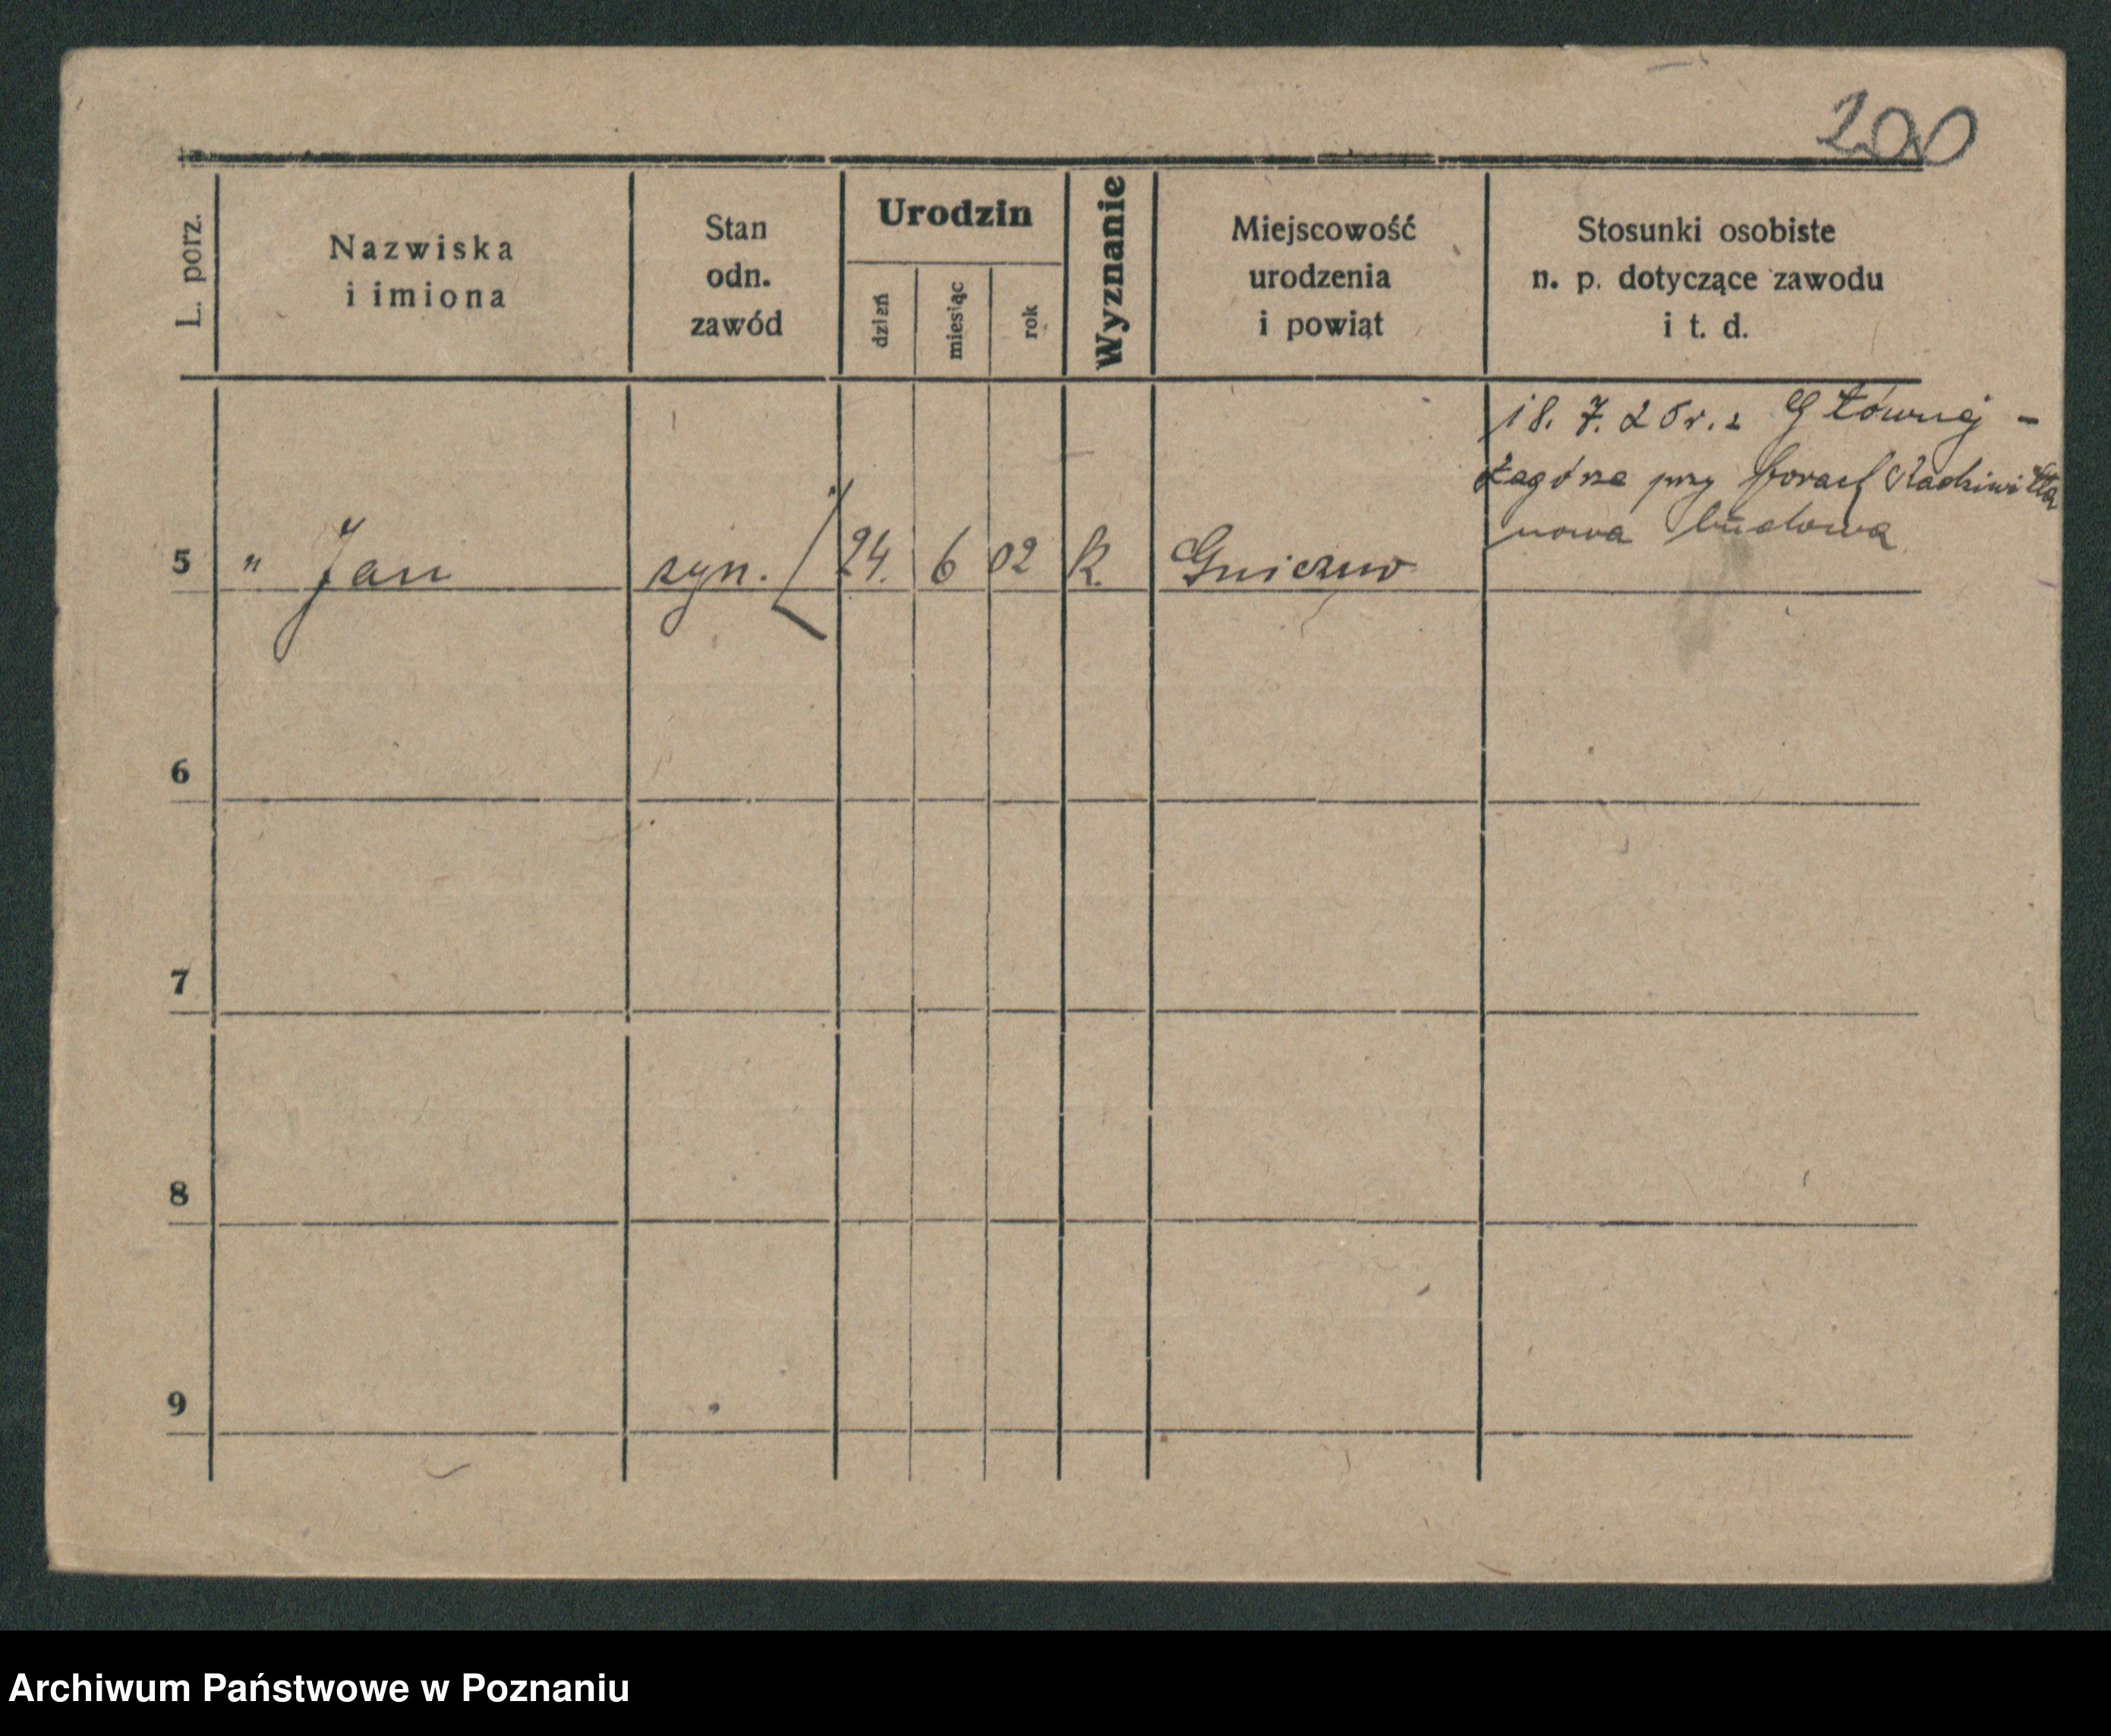 200
L. porz.
Nazwiska
i imiona
Stan
odn.
zawód
Urodzin
dzień
miesiąc
rok
Wyznanie
Miejscowość
urodzenia
i powiat
Stosunki osobiste
n. p. dotyczące zawodu
i t. d.
18. 7. 25 r. z Główny -
Zagórze przy Radziwiłła
nowa budowa
5 " Jan syn. 24. 6 02 R. Gniezno
6
7
8
9
Archiwum Państwowe w Poznaniu